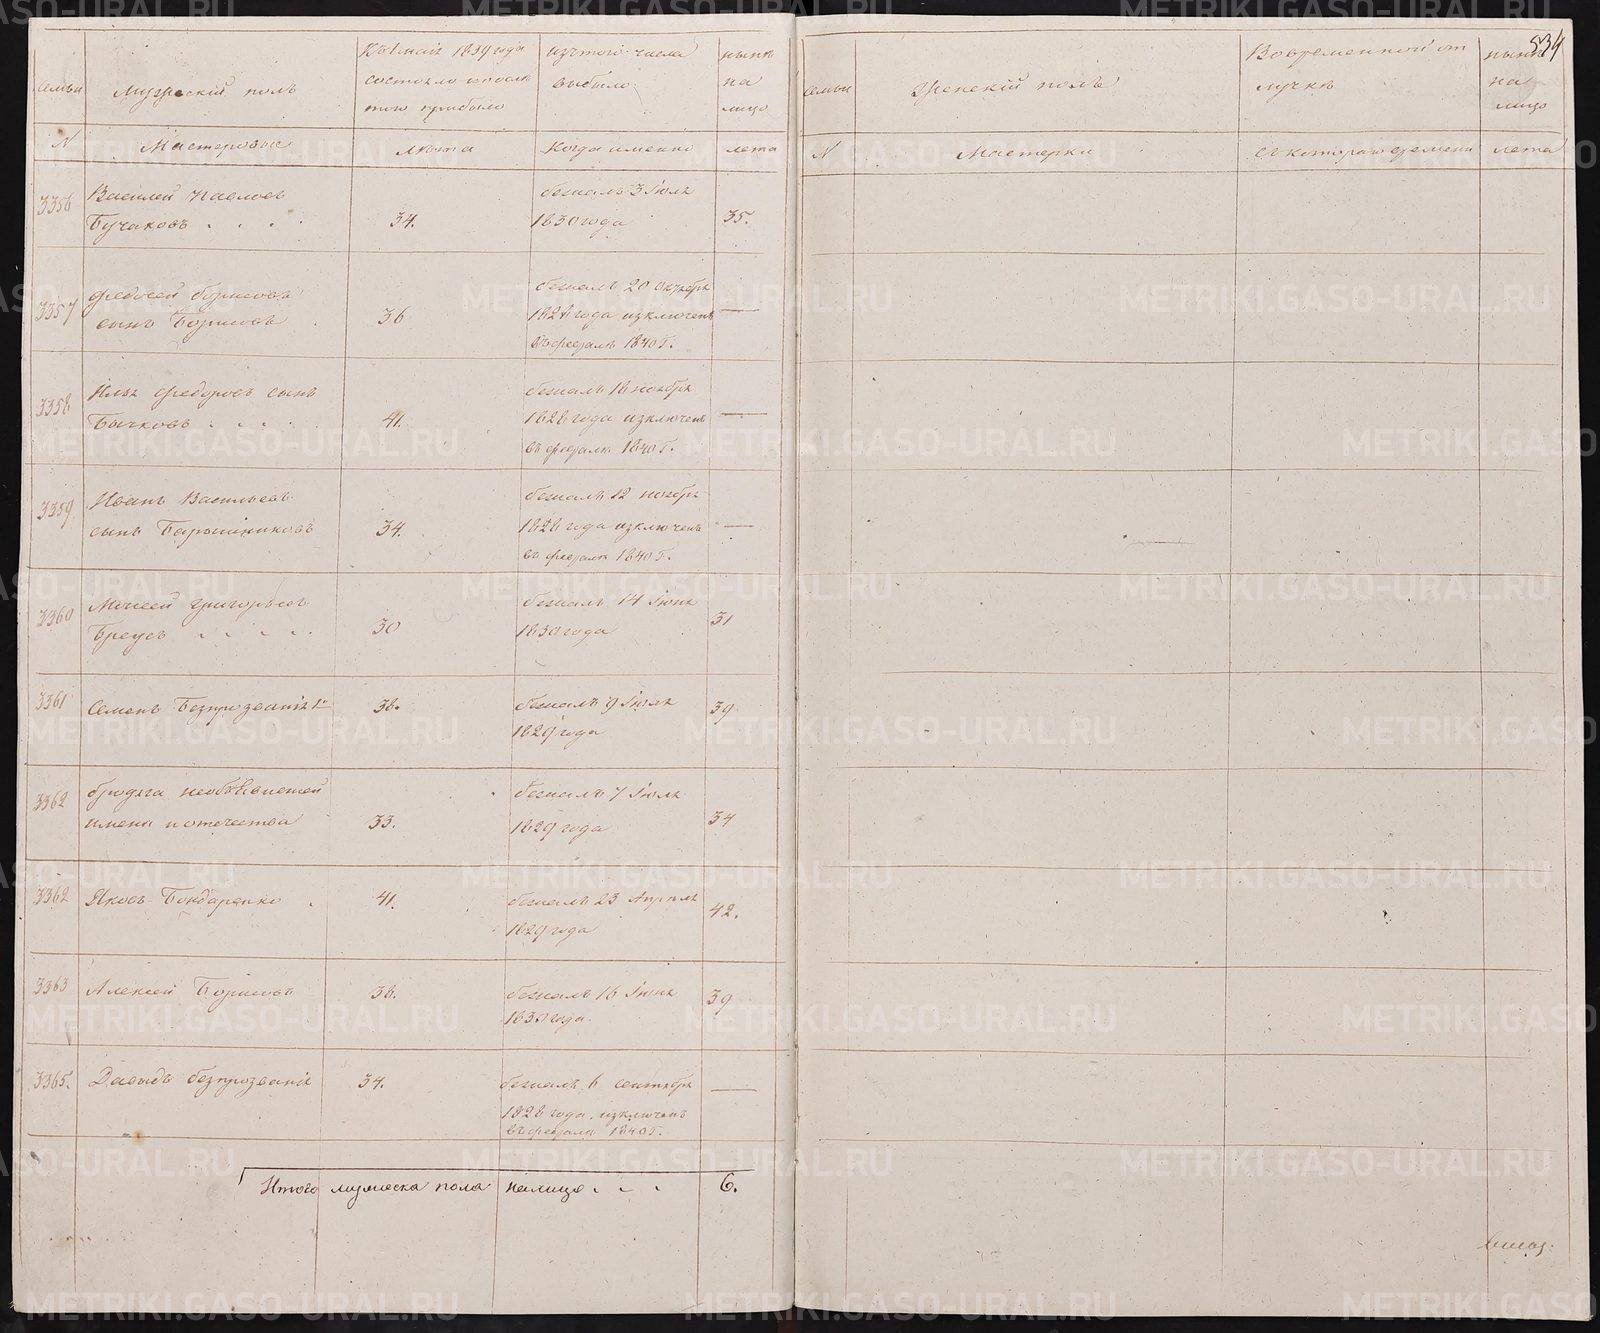 534
Семьи
Мужескій полъ
Къ 1 маія 1839 года
состояло и после
того прибыло
изъ того числа
выбыло
ныне
на
лицо
N
Мастеровые
лета
Когда именно
лета
3356
Василей Павловъ
Бучаковъ . . . .
34.
бежалъ 3 Іюля
1830 года
35.
3357
Федосей Борисовъ
сынъ Борисовъ .
36
бежалъ 20 Октября
1828 года изключенъ
въ феврале 1840 г.
—
3358
Илья Федоровъ сынъ
Бычковъ . . . .
41.
бежалъ 18 ноября
1828 года изключенъ
въ феврале 1840 г.
—
3359
Иванъ Васильевъ
сынъ Барышниковъ
34.
бежалъ 12 ноября
1828 года изключенъ
въ феврале 1840 г.
—
3360
Моисей Григорьевъ
Бреусъ . . . . .
30
бежалъ 14 Іюня
1830 года
31
3361
Семенъ Безпрозванія 1й
38.
бежалъ 9 Іюля
1829 года
39
3362
бродяга необъявившей
имени и отечества
33.
бежалъ 7 Іюля
1829 года
34
3362
Яковъ Бондаренко .
41.
бежалъ 23 Апреля
1829 года
42.
3363
Алексей Борисовъ
38.
бежалъ 16 Іюня
1830 года
39
3365.
Давыдъ безпрозванія
34.
бежалъ 6 сентября
1828 года, изключенъ
въ феврале 1840 г.
—
Итого мужеска пола налицо . . . 6.
Семьи
Женскій полъ
Во временной от
лучке
ныне
на
лицо
N
Мастерки
съ котораго времени
лета
METRIKI.GASO-URAL.RU